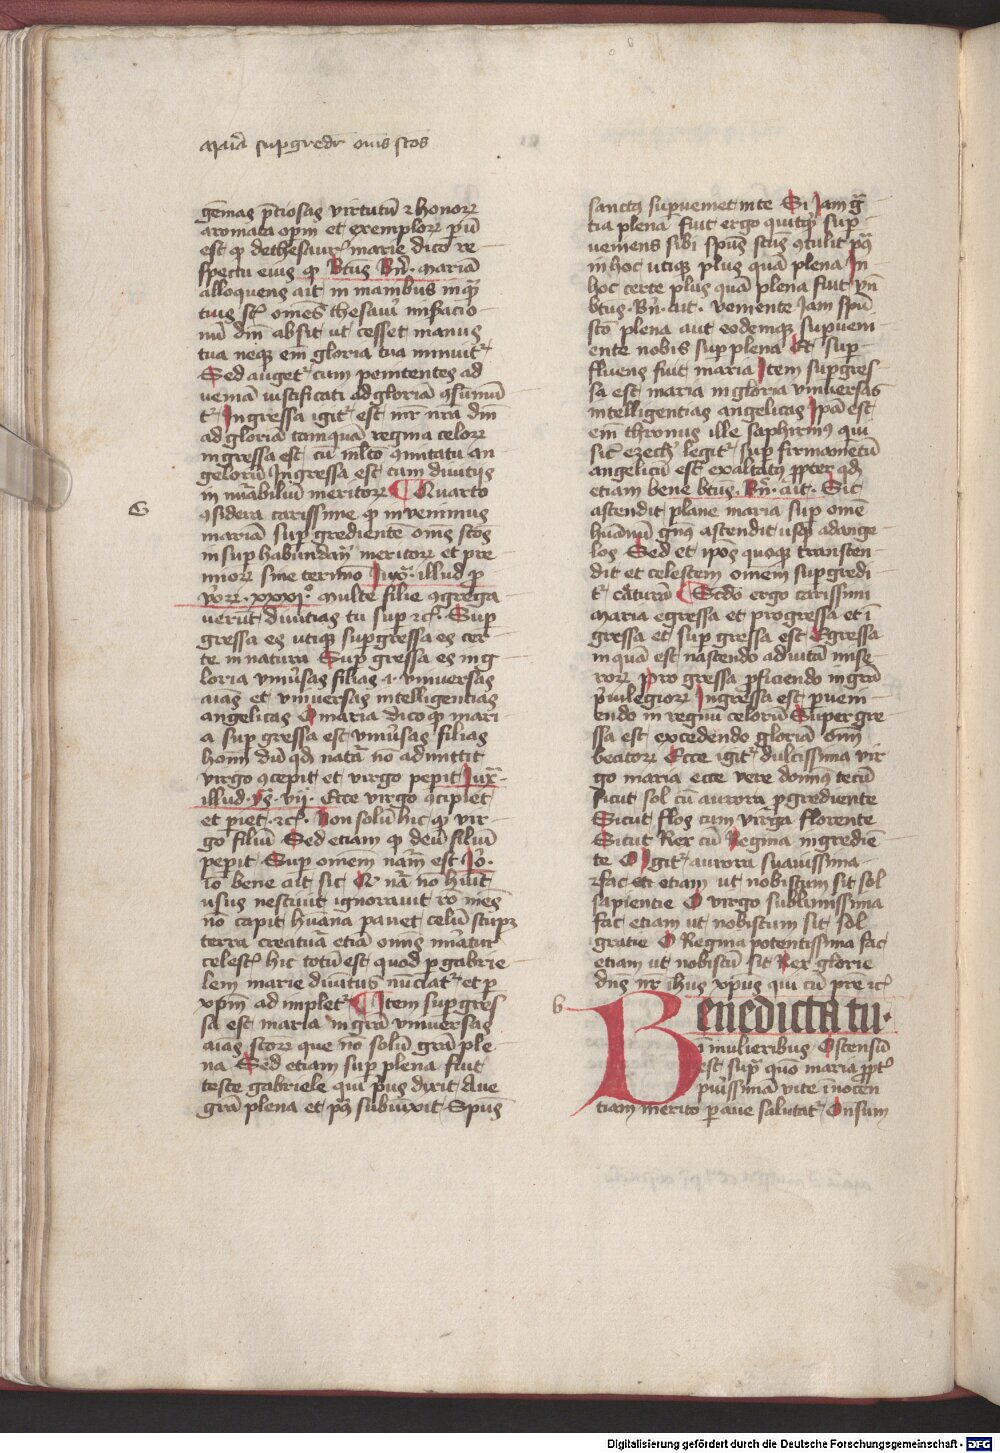 maria supgredr om̄s sc̄os
gemas p̄ciosas virtutū ⁊ honorꝝ
aromata opm̄ et exemplorꝝ pū
est ꝙ de thesaurꝭ marie dico re
spectu eius ꝙ Btūs Bn̄. mariā
alloquens ait in manibus inqͣ
tuis st̄ om̄es thesauri miſacio
nū dn̄i absit ut cesset manus
tua neqꝫ em̄ gloria tua minuitꝛ
Sed augetꝛ cum penitentes ad
veniā iustificati ad gloriā ꝯsumūt
tꝛ Ingressa igitꝛ est mr̄ nr̄a dn̄i
ad gloriā tamquā regina celorꝝ
ingressa est cū mlto ꝯmitatu an
gelorū Ingressa est cum diuitijs
in mīabiliū meritorꝝ ¶ Quarto
G
ꝯsidera carissime ꝙ inuenimus
mariā supgredientē om̄s sc̄os
in suphabundanꝰ meritorꝝ et pre
miorꝝ sine termīo Juxͣ illud ꝑ
uorꝝ .xxxjº. multe filie ꝯgrega
uerūt diuitias tu sup ⁊cꝭ. Sup
gressa es utiqꝫ supgressa es cer
te in natura Supgressa es in g
loria vniūsas filias .i. vniuersas
aīas et vniuersas intelligencias
angelicas O maria dico ꝙ mari
a supgressa est vniūsas filias
homī dū qd̄ natā nō admittit
virgo ꝯcepit et virgo peꝑit Juxͣ
illud .ys. vij. Ecce virgo ꝯcipiet
et pīet ⁊cꝭ. Non solū hic ꝙ vir
go filiū Sed etiam ꝙ deū filiū
peꝑit Sup omēm nām̄ est Jo.
īo bene ait sic Ꝙ nr̄a nō hūit
usus nesciuit ignorauit rō mēs
nō capit hūana pauet celū stupꝫ
terra creatura etiā om̄is mīatur
celestꝭ hic totū est quod ꝑ gabrie
lem marie diuītus nūciatꝛ et ꝑ
xp̄m adimpletꝛ ¶ Item supgres
sa est maria in gr̄a vniuersas
aīas sc̄orꝝ que nō solū gr̄a ple
na Sed etiam sup plena fuit
teste gabriele qui prius dixit Aue
gr̄a plena et pꝰ subiūxit Spūs
sanctꝰ supueniet in te Si Jam gͣ
tia plena fuit ergo quitqͥd sup
ueniens sibi spūs sc̄us ꝯtulit pꝰ
in hoc utiqꝫ plus quā plena In
hoc certe plus quā plena fuit vn̄
btūs. Bn̄. ait. veniente Jam spū
sc̄o plena aut eodemqꝫ supueni
ente nobis sup plena Et sup
fluens fuit maria Item supgres
sa est maria in gloria vniuersas
intelligentias angelicas Ipā est
em̄ thronus ille saphirinꝰ qui
sic̄ ezech̄ legitꝛ sup firmamētū
angelicū est exaltatꝰ ꝓpter qd̄
etiam bene btūs. Bn̄. ait. Sic
ascendit plane maria sup omē
hūanū gn̄s ascendit usqꝫ ad ange
los Sed et ip̄os quoqꝫ transcen
dit et celestem omēm supgredi
tꝛ cātura ¶ Sc̄do ergo carissimi
maria egressa et progressa et ī
gressa et supgressa est Egressa
inquā est nascendo ad uitā mise
rorꝝ Progressa ꝓficiendo in gr̄a
p̄uilegiorꝝ Ingressa est pueni
endo in regnū celorū Supergre
ssa est excedendo gloriā om̄
beatorꝝ Ecce igitꝛ dulcissima vir
go maria ecce vere dominꝰ tecū
sicut sol cū aurora ꝓgrediente
Sicut flos cum virga florente
Sicut Rex cū Regina ingrediē
te O Igitꝛ aurora suauissima
fac etī etiam ut nobiscum sit sol
sapientie O virgo sublimissima
fac etiam ut nobiscum sit sol
gratie O Regina potentissima fac
etiam ut nobiscū sit Rex glorie
dn̄s nr̄ ihūs xp̄us qui cū pr̄e ⁊cꝭ
b
Benedicta tu.
ī mulieribus Ostensū
est supͣ quō maria ꝓptꝭ
puīssimā vite īnocen
tiam merito ꝑ aue salutatꝛ Onsum
Digitalisierung gefördert durch die Deutsche Forschungsgemeinschaft - DFG